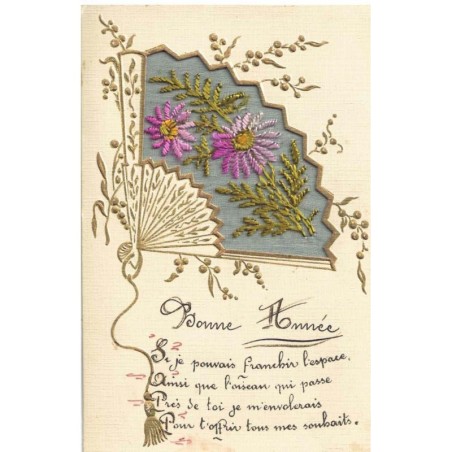 Bonne Année
Si je pouvais franchir l'espace,
Ainsi que l'oiseau qui passe
Près de toi je m'envolerais
Pour t'offrir tous mes souhaits.